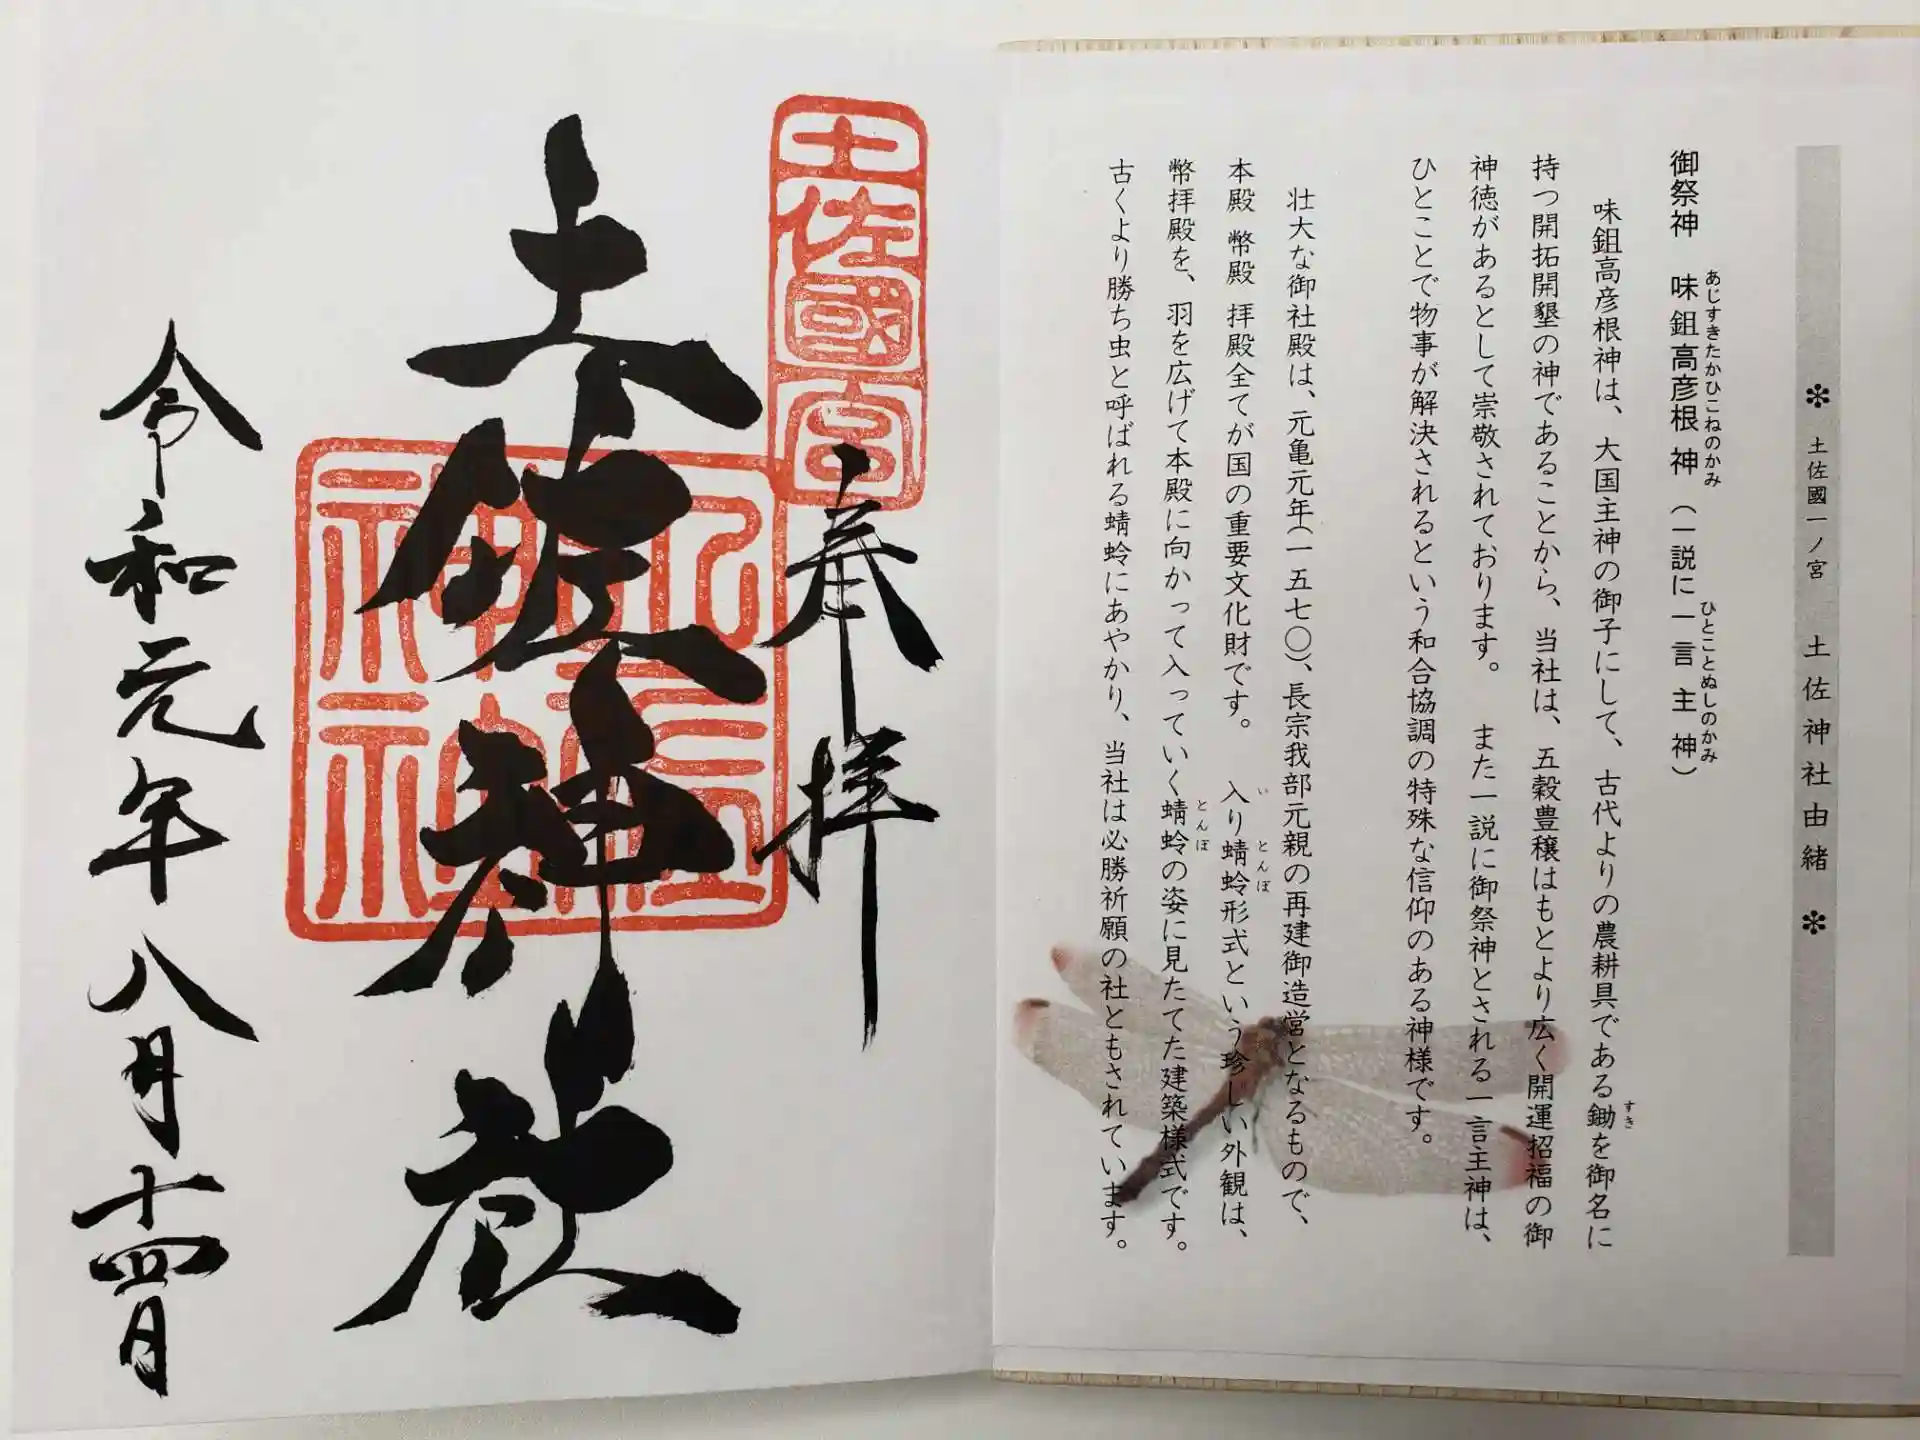 ❇ 土佐國一ノ宮 土佐神社由緒 ❇
御祭神 味鉏高彦根神（一説に一言主神）
あじすきたかひこねのかみ
ひとことぬしのかみ
味鉏高彦根神は、大国主神の御子にして、古代よりの農耕具である鋤を御名に
すき
持つ開拓開墾の神であることから、当社は、五穀豊穣はもとより広く開運招福の御
神徳があるとして崇敬されております。 また一説に御祭神とされる一言主神は、
ひとことで物事が解決されるという和合協調の特殊な信仰のある神様です。
壮大な御社殿は、元亀元年（一五七〇）、長宗我部元親の再建御造営となるもので、
本殿 幣殿 拝殿全てが国の重要文化財です。 入り蜻蛉形式という珍しい外観は、
い とんぼ
幣拝殿を、羽を広げて本殿に向かって入っていく蜻蛉の姿に見たてた建築様式です。
とんぼ
古くより勝ち虫と呼ばれる蜻蛉にあやかり、当社は必勝祈願の社ともされています。
土佐國一宮
奉拝
土佐神社
令和元年八月十四日